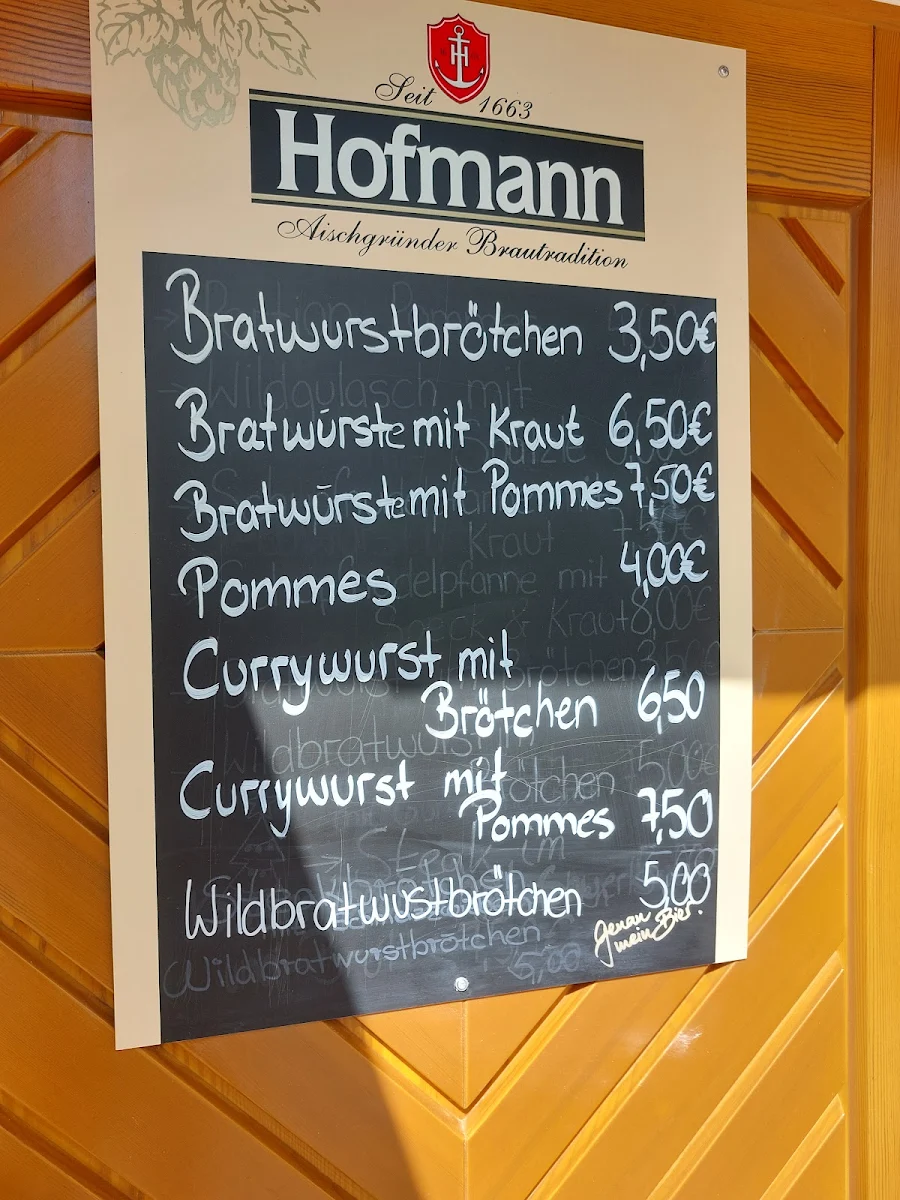 Seit 1663
Hofmann
Aischgründer Brautradition
Bratwurstbrötchen 3,50€
Bratwürste mit Kraut 6,50€
Bratwürste mit Pommes 7,50€
Pommes 4,00€
Currywurst mit
Brötchen 6,50
Currywurst mit
Pommes 7,50
Wildbratwustbrötchen 5,00
Wildbratwurstbrötchen 5,00
Genau
mein Bier!